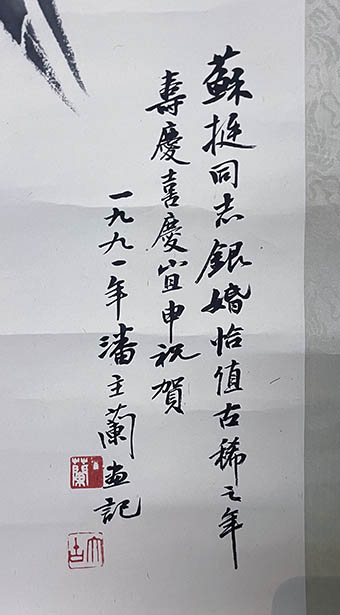 蘇挺同志銀婚恰值古稀之年
壽慶喜慶宜申祝賀
一九九一年潘主蘭畫記